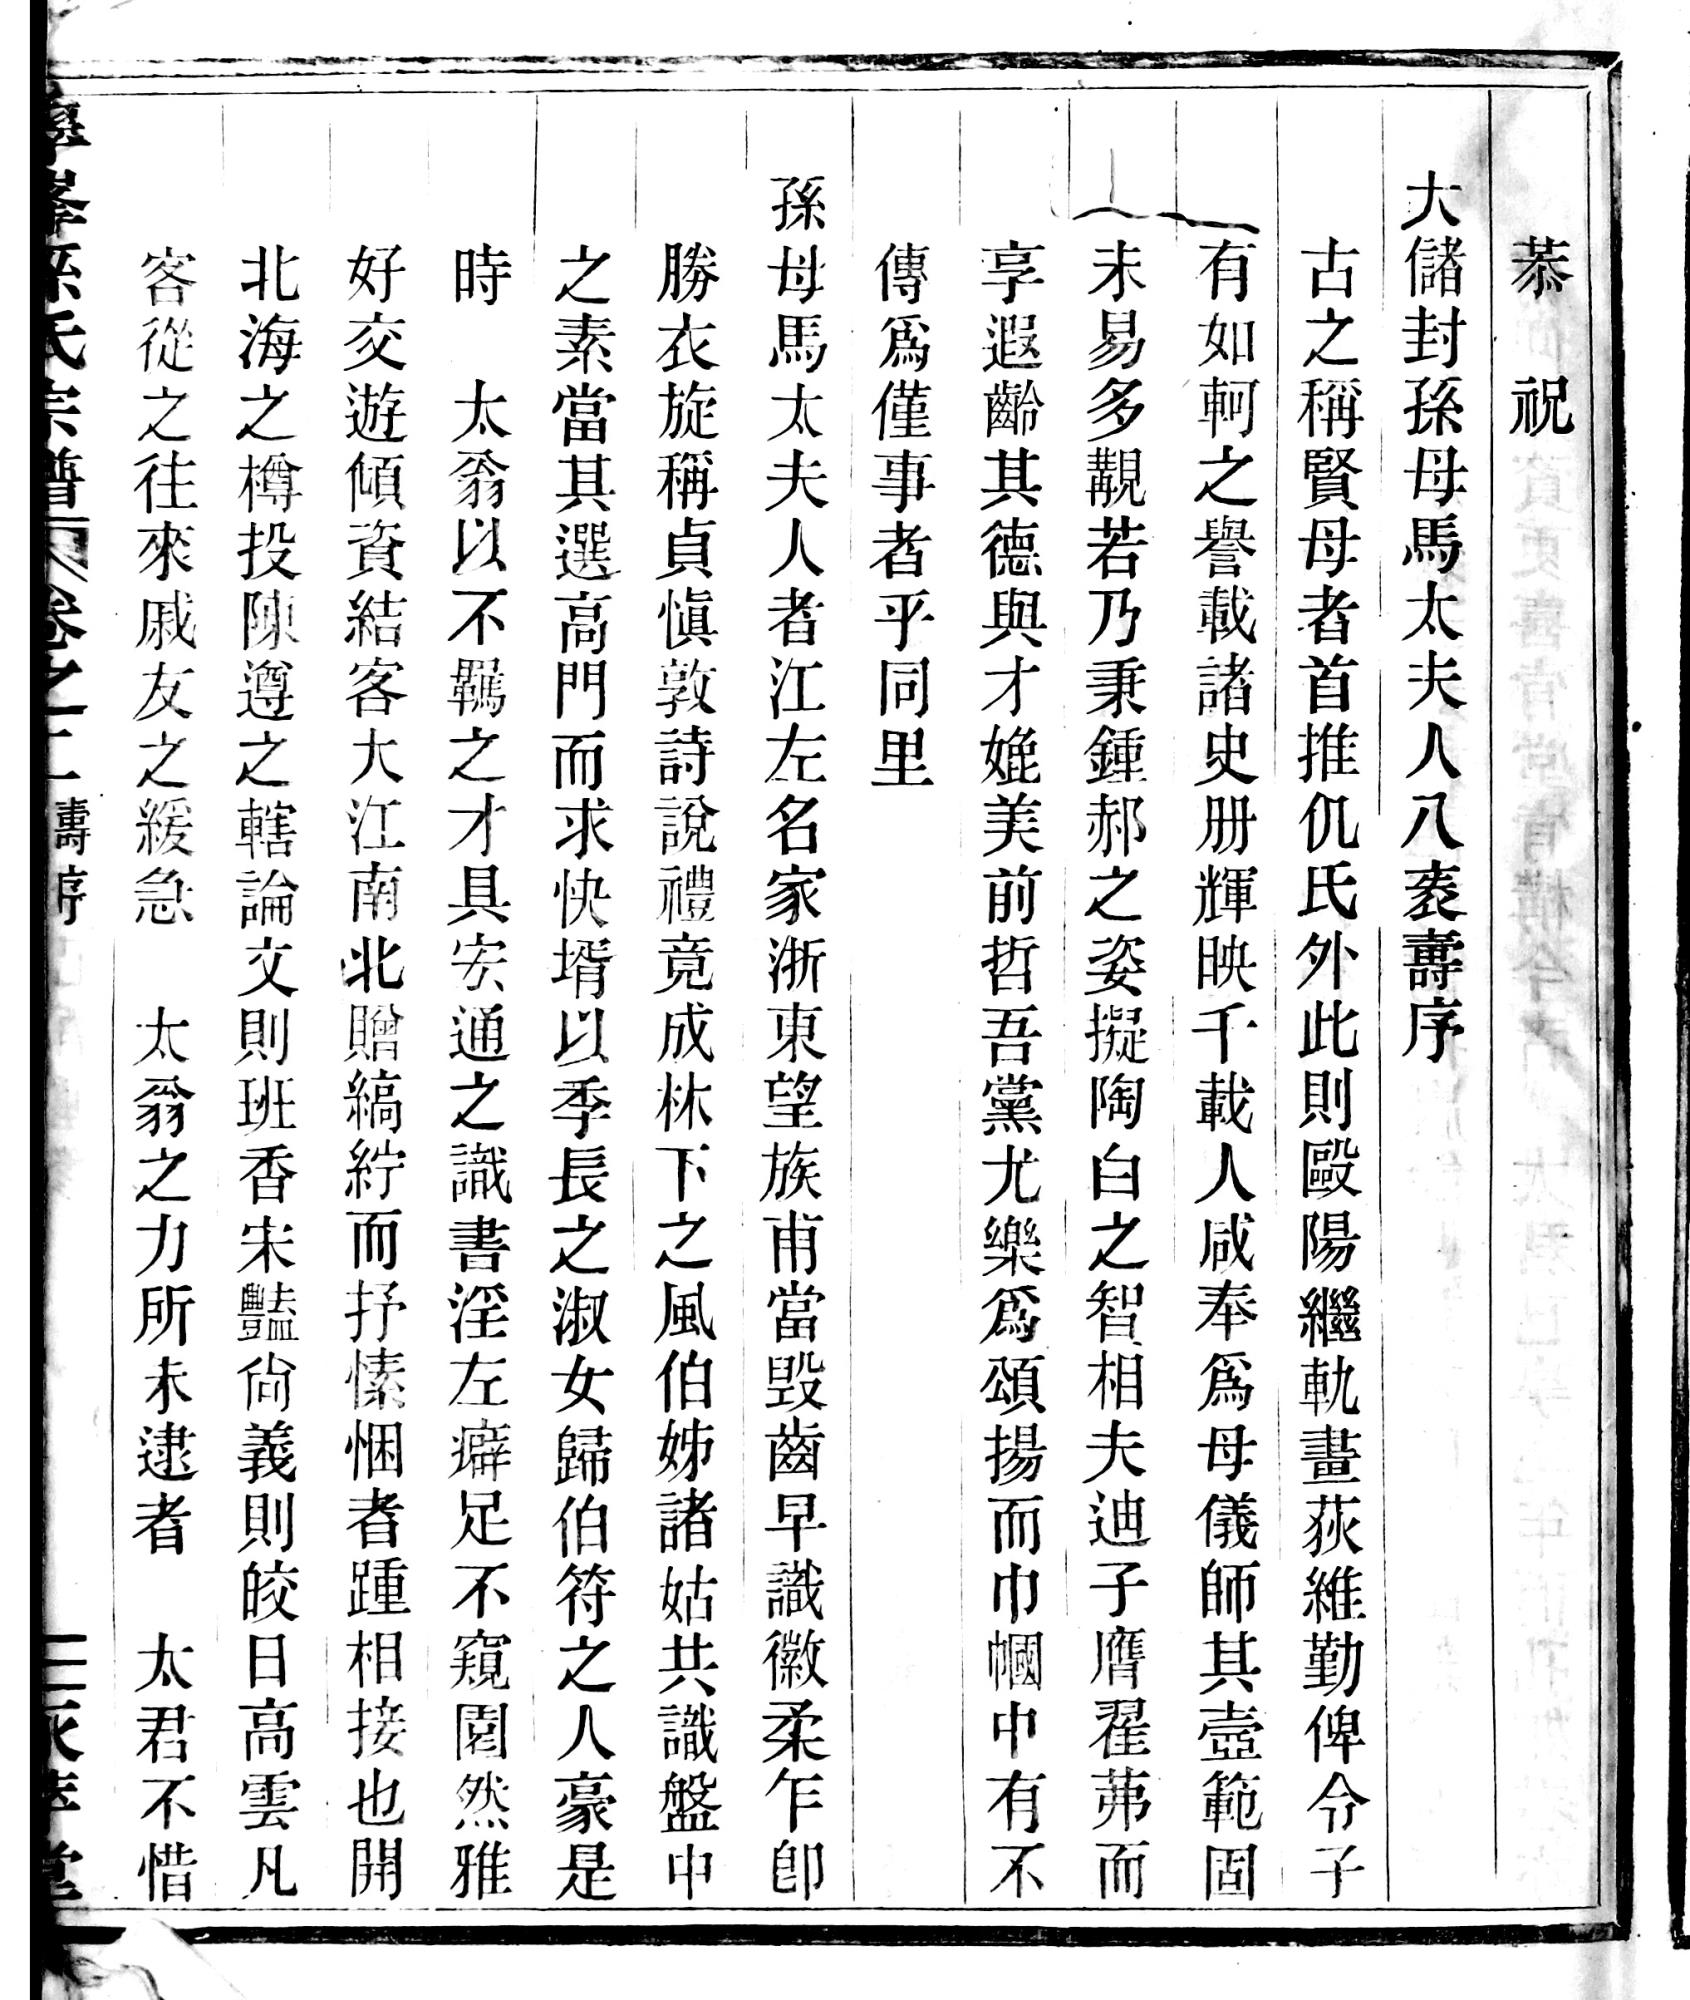 恭祝
大儲封孫母馬太夫人八袠壽序
古之稱賢母者首推仉氏外此則歐陽繼軌畫荻維勤俾令子
有如軻之譽載諸史册輝映千載人咸奉爲母儀師其壼範固
未易多觏若乃秉鍾郝之姿擬陶白之智相夫迪子膺翟茀而
享遐齡其德與才媲美前哲吾黨尤樂爲頌揚而巾幗中有不
傳爲僅事者乎同里
孫母馬太夫人者江左名家浙東望族甫當毁齒早識徽柔乍卽
勝衣旋稱貞愼敦詩說禮竟成林下之風伯姊諸姑共識盤中
之素當其選高門而求快壻以季長之淑女歸伯符之人豪是
時　太翁以不羈之才具宏通之識書淫左癖足不窺園然雅
好交遊傾資結客大江南北贈縞紵而抒愫悃者踵相接也開
北海之樽投陳遵之轄論文則班香宋豔尙義則皎日高雲凡
客從之往來戚友之緩急　太翁之力所未逮者　太君不惜
峯孫氏宗譜 卷之二 壽序 二 萃堂